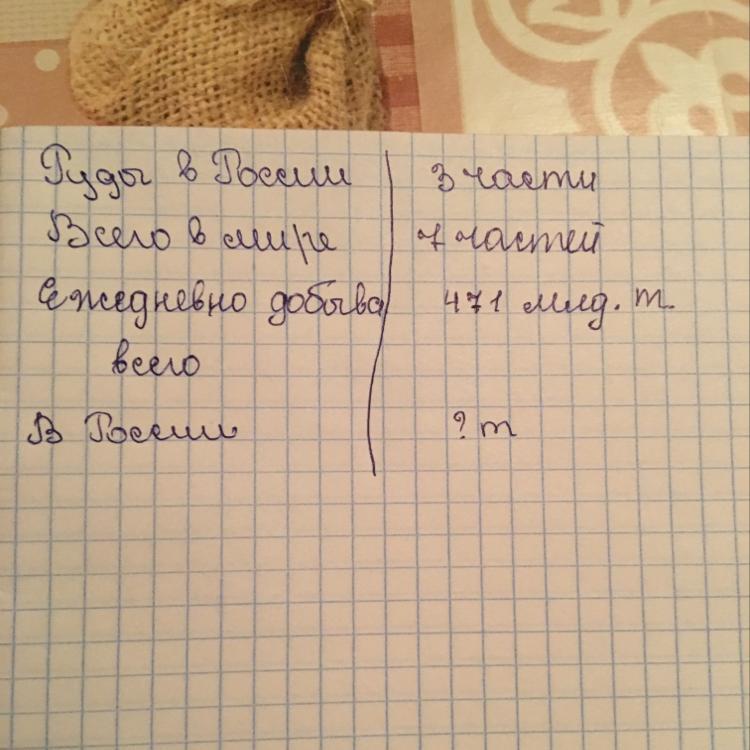 Руды в России 3 части
Всего в мире 7 частей
Ежедневно добыва 471 млд. т.
всего
В России ? т